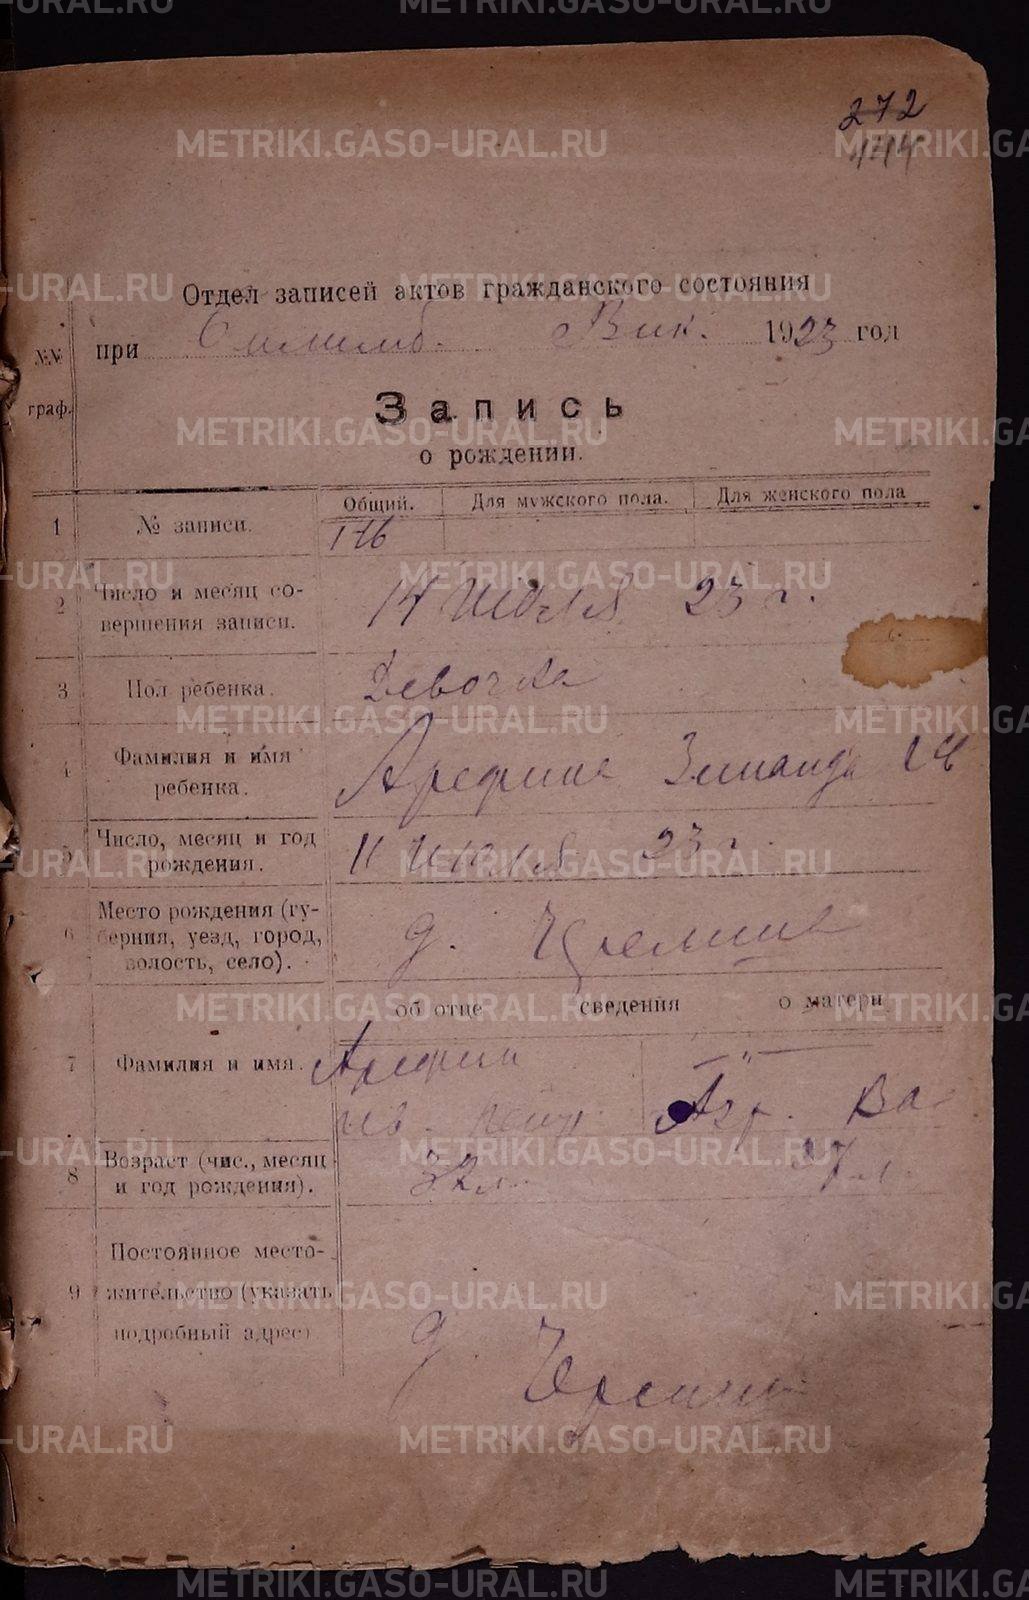 272
Отдел записей актов гражданского состояния
при Вик. 1923 год
№№
граф.
Запись
о рождении.
Общий. Для мужского пола. Для женского пола
1 № записи. 176
2 Число и месяц со-
вершения записи. 14 июля 23 г.
3 Пол ребенка. Девочка
4 Фамилия и имя
ребенка. Арефина Зинаида
5 Число, месяц и год
рождения. 11 июля 23 г.
6 Место рождения (гу-
берния, уезд, город,
волость, село). д.
об отце сведения о матери
7 Фамилия и имя. Арефин — " —
Агр. Ва-
8 Возраст (чис., месяц
и год рождения). 32 л. 27 л
9 Постоянное место-
жительство (указать
подробный адрес) д.
METRIKI.GASO-URAL.RU